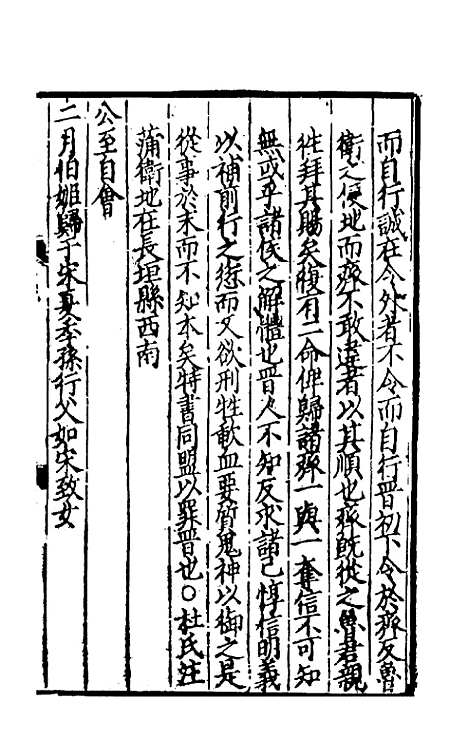 而自行誠在令外者不令而自行晉初下令於齊反魯
衛之侵地而齊不敢違者以其順也齊旣從之魯君親
徃拜其賜矣復有二命俾歸諸齊一與一奪信不可知
無或乎諸侯之解體也晉人不知反求諸已惇信明義
以補前行之愆而又欲刑牲歃血要質鬼神以御之是
從事於末而不知本矣特書同盟以罪晉也○杜氏注
蒲衛地在長垣縣西南
公至自會
二月伯姬歸于宋夏季孫行父如宋致女